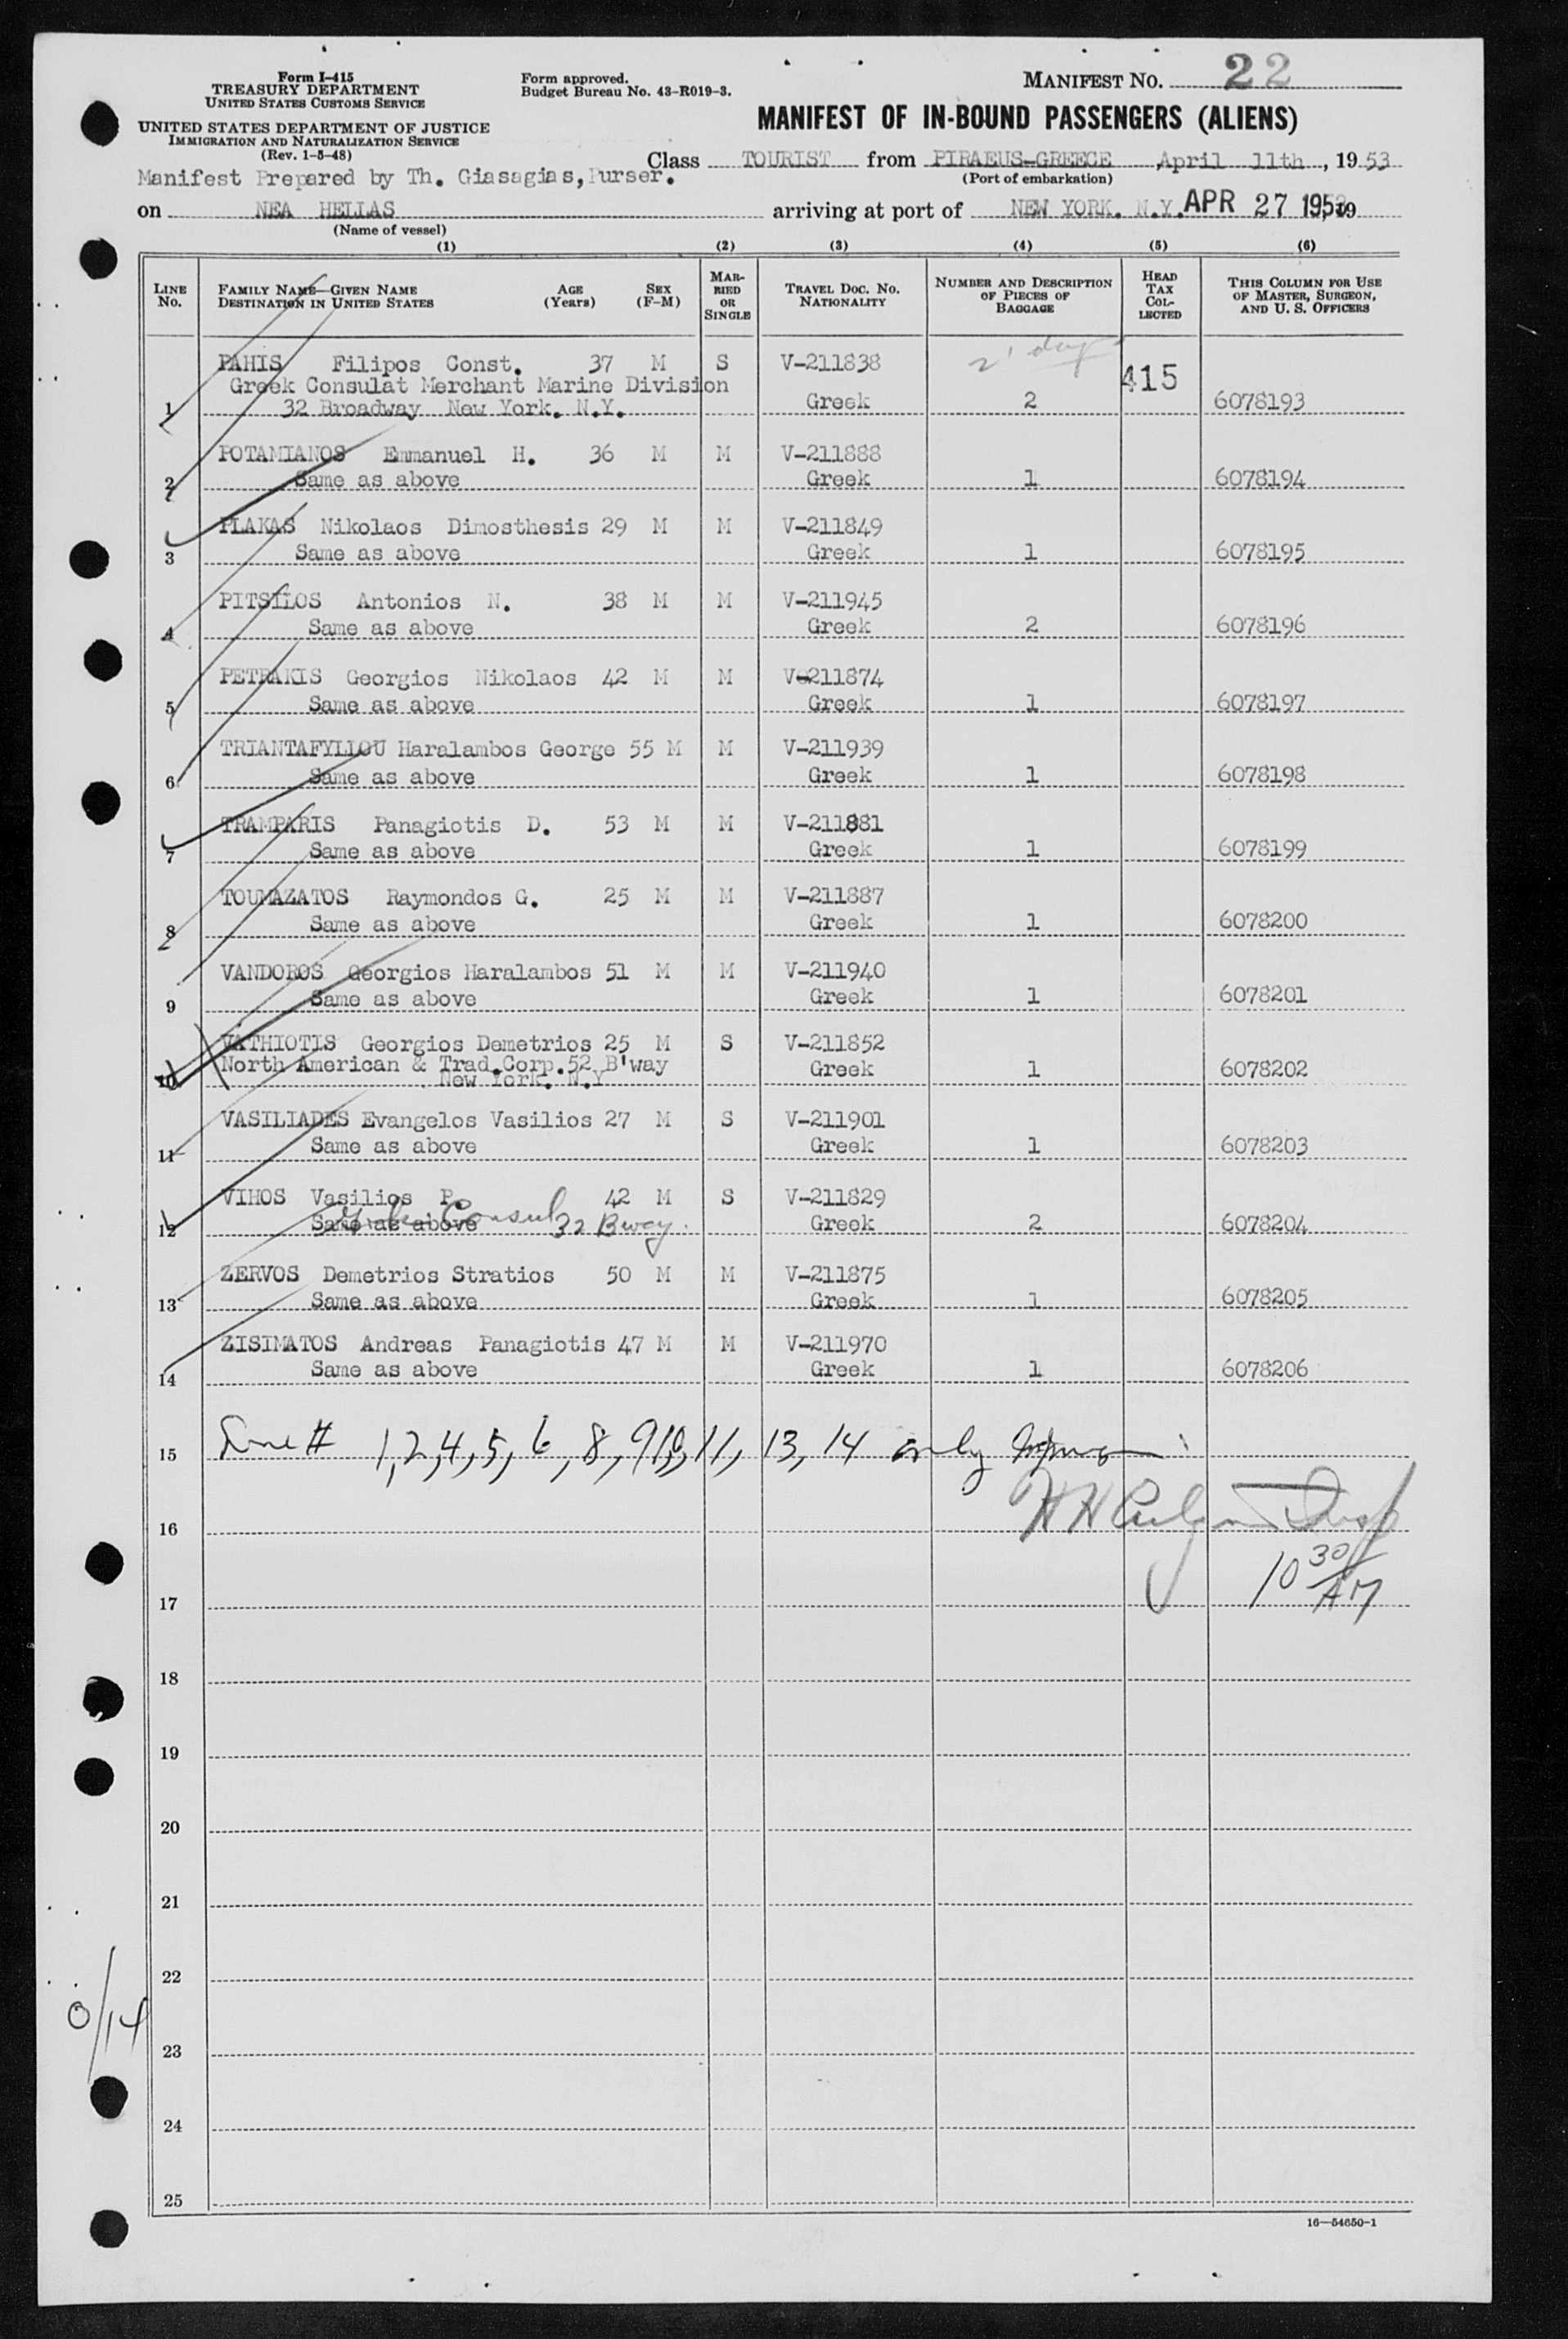 Form I-415
TREASURY DEPARTMENT
UNITED STATES CUSTOMS SERVICE
UNITED STATES DEPARTMENT OF JUSTICE
IMMIGRATION AND NATURALIZATION SERVICE
(Rev. 1-5-48)
Form approved.
Budget Bureau No. 43-R019-3.
MANIFEST NO. 22
MANIFEST OF IN-BOUND PASSENGERS (ALIENS)
Class TOURIST from PIRAEUS-GREECE, April 11th, 1953
(Port of embarkation)
Manifest Prepared by Th. Giasagias, Purser.
on NEA HELLAS arriving at port of NEW YORK. N.Y. APR 27 1953 19
(Name of vessel)
(1) (2) (3) (4) (5) (6)
LINE No. FAMILY NAME—GIVEN NAME DESTINATION IN UNITED STATES AGE (Years) SEX (F-M) MARRIED OR SINGLE TRAVEL DOC. NO. NATIONALITY NUMBER AND DESCRIPTION OF PIECES OF BAGGAGE HEAD TAX COLLECTED THIS COLUMN FOR USE OF MASTER, SURGEON, AND U. S. OFFICERS
PAHIS Filipos Const. 37 M S V-211838 415
Greek Consulat Merchant Marine Division
1 32 Broadway New York. N.Y. Greek 2 6078193
POTAMIANOS Emmanuel H. 36 M M V-211888
2 Same as above Greek 1 6078194
PLAKAS Nikolaos Dimosthesis 29 M M V-211849
3 Same as above Greek 1 6078195
PITSILOS Antonios N. 38 M M V-211945
4 Same as above Greek 2 6078196
PETRAKIS Georgios Nikolaos 42 M M V-211874
5 Same as above Greek 1 6078197
TRIANTAFYLLOU Haralambos George 55 M M V-211939
6 Same as above Greek 1 6078198
TRAMPARIS Panagiotis D. 53 M M V-211881
7 Same as above Greek 1 6078199
TOUMAZATOS Raymondos G. 25 M M V-211887
8 Same as above Greek 1 6078200
VANDOROS Georgios Haralambos 51 M M V-211940
9 Same as above Greek 1 6078201
VATHIOTIS Georgios Demetrios 25 M S V-211852
10 North American & Trad.Corp.52 B'way Greek 1 6078202
New York. N.Y
VASILIADES Evangelos Vasilios 27 M S V-211901
11 Same as above Greek 1 6078203
VIHOS Vasilios P. 42 M S V-211829
12 Same as above Consul 32 Bway. Greek 2 6078204
ZERVOS Demetrios Stratios 50 M M V-211875
13 Same as above Greek 1 6078205
ZISIMATOS Andreas Panagiotis 47 M M V-211970
14 Same as above Greek 1 6078206
15 Line # 1, 2, 4, 5, 6, 8, 9, 10, 11, 13, 14 only
16
10 30/AM
17
18
19
20
21
22
0/14
23
24
25
16—54650-1